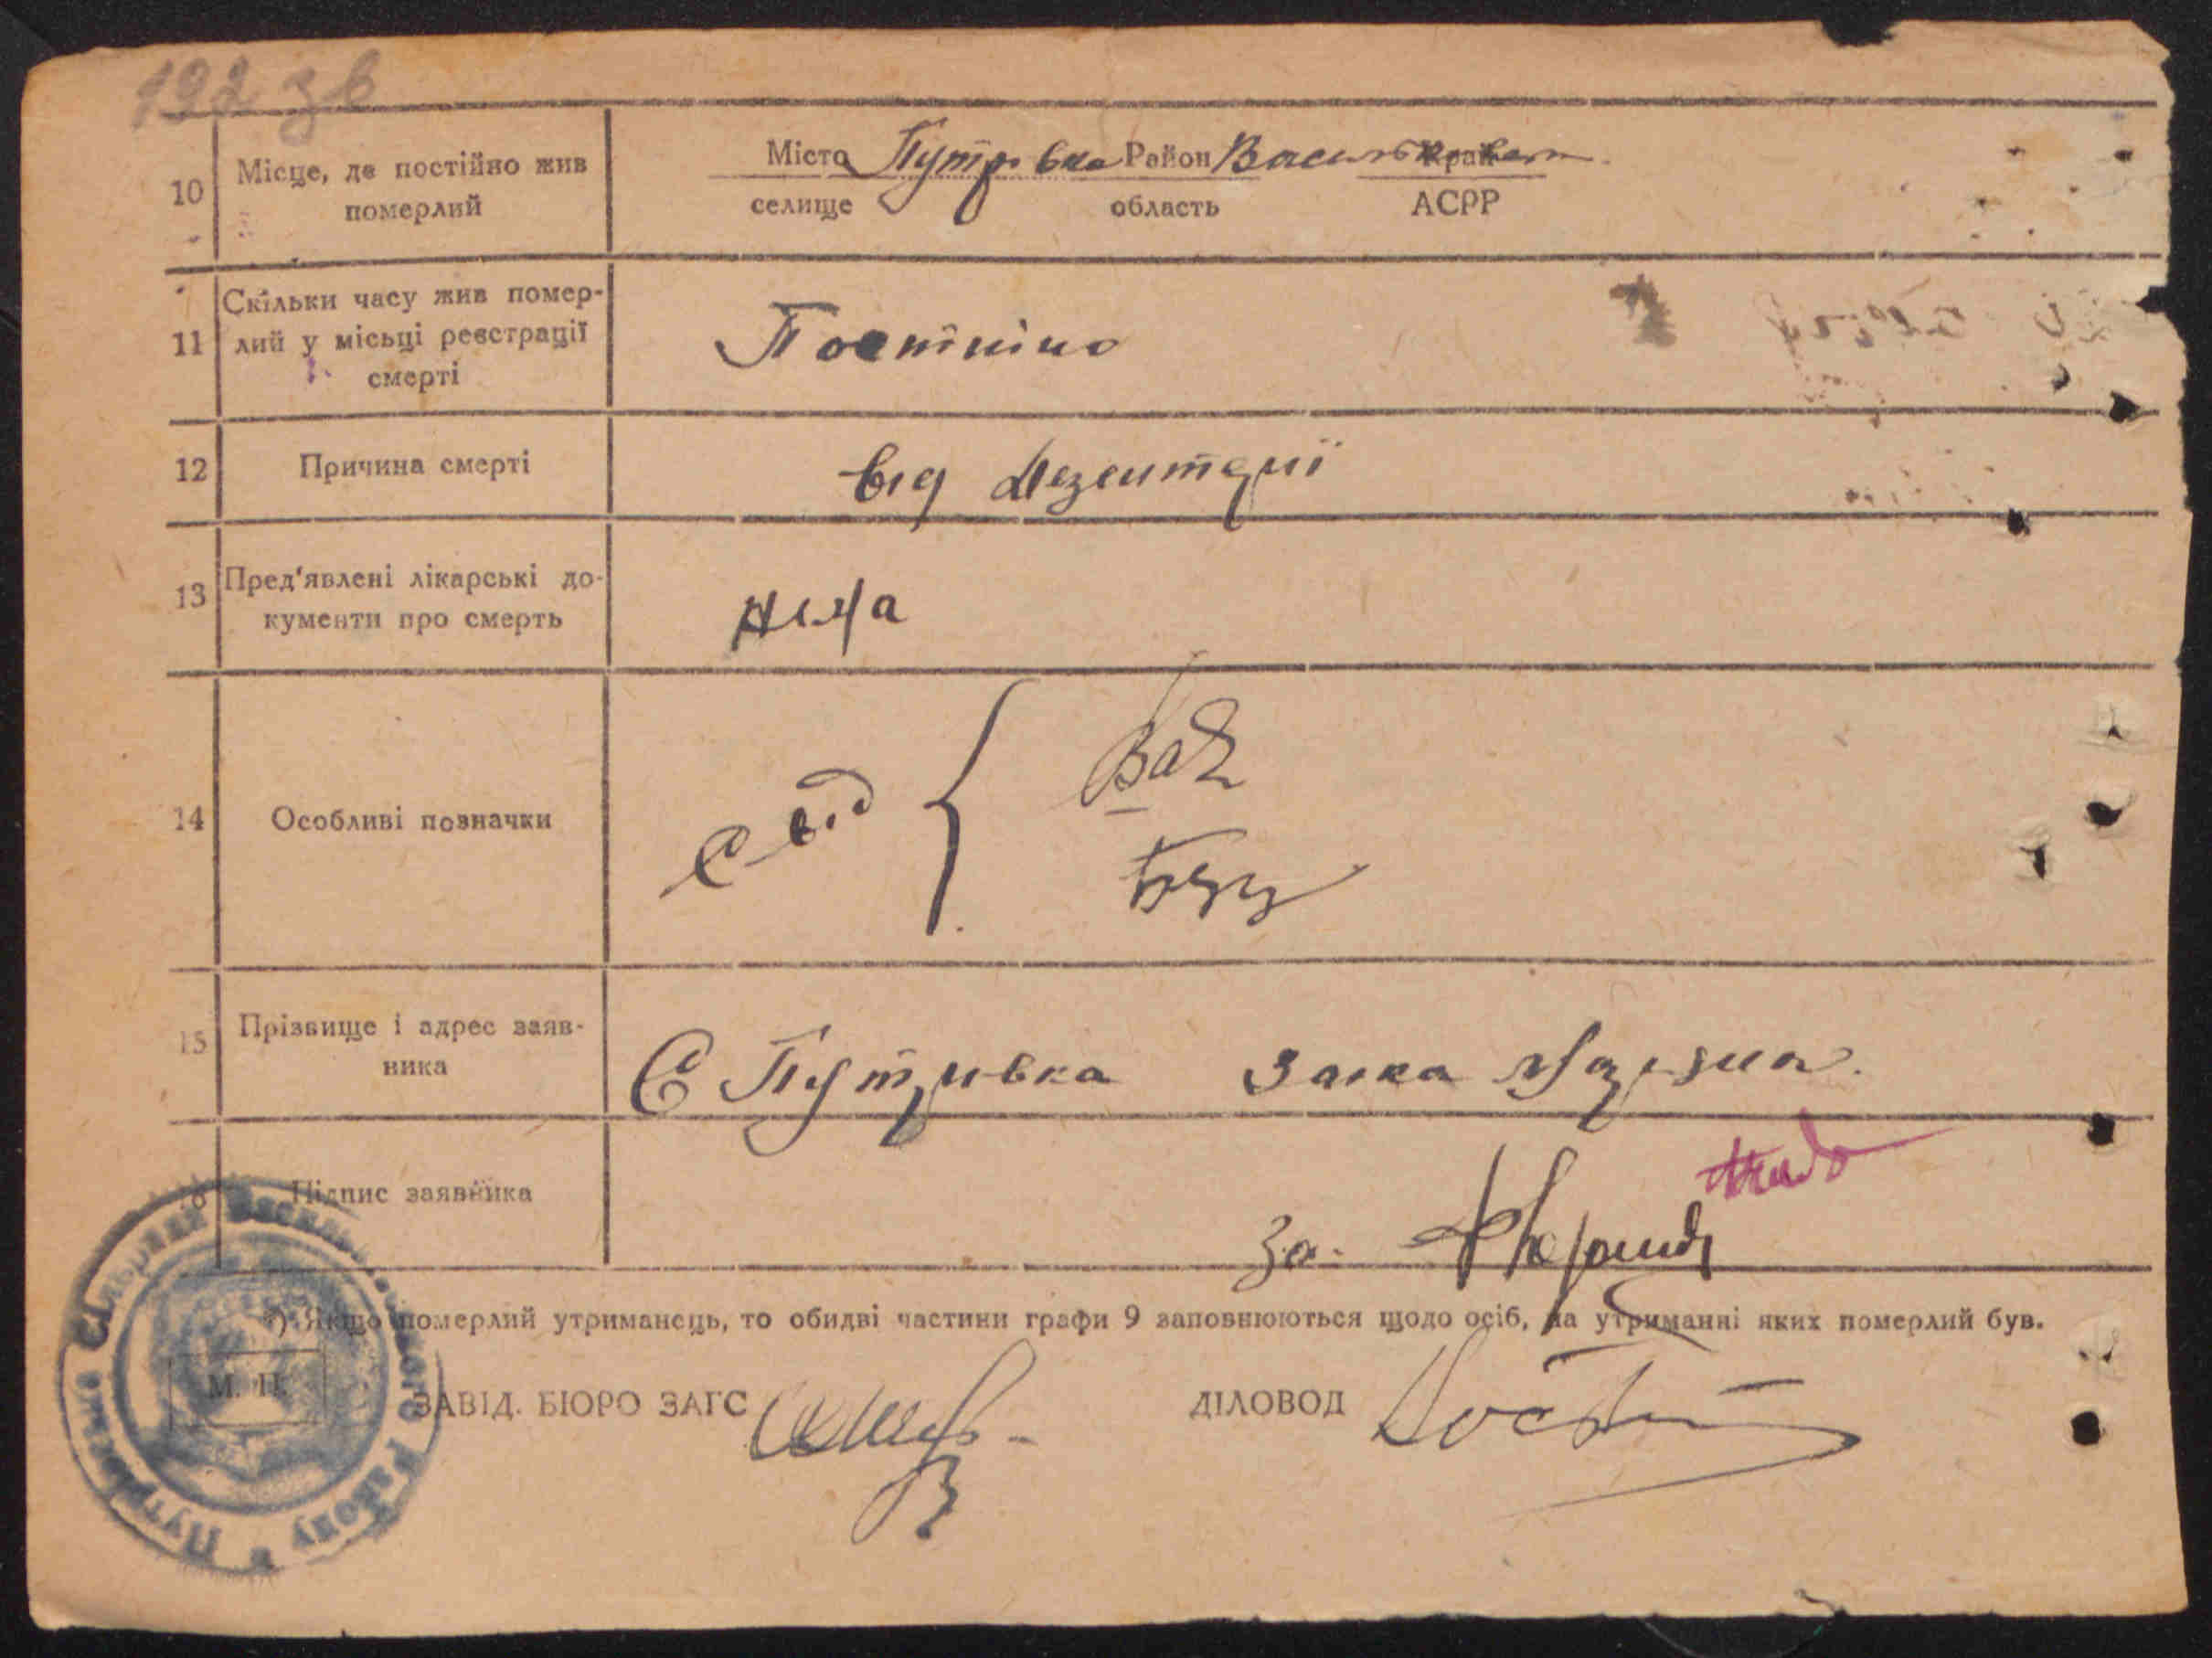 192 зв
10
Місце, де постійно жив
померлий
Місто Путрівка Район Васильковськ Край
селище область АСРР
11
Скільки часу жив помер-
лий у місьці реєстрації
смерті
Постійно
12
Причина смерті
Від дезентерії
13
Пред'явлені лікарські до-
кументи про смерть
нема
14
Особливі позначки
Свід {
15
Прізвище і адрес заяв-
ника
С Путрівка Заїка
16
Підпис заявника
За
*) Якщо померлий утриманець, то обидві частини графи 9 заповнюються щодо осіб, на утриманні яких померлий був.
М. П.
ЗАВІД. БЮРО ЗАГС
ДІЛОВОД
Путрівська Сільрада Васильківського Району